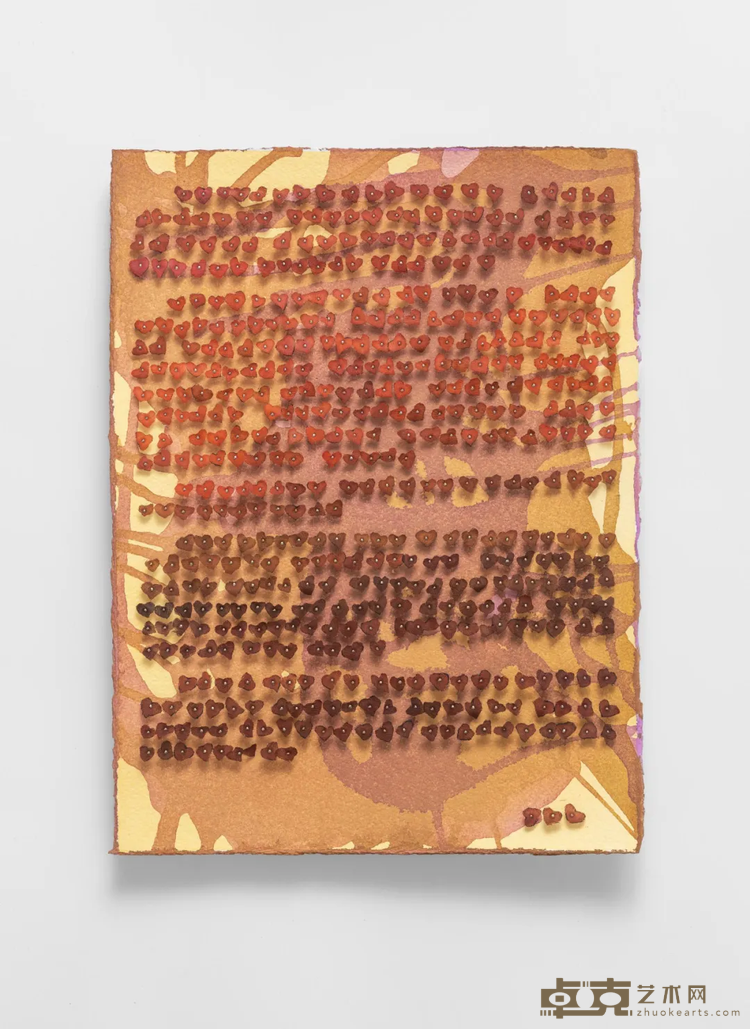 卓克艺术网
zhuokearts.com